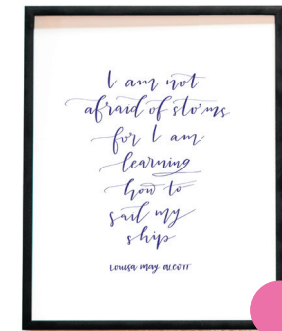 I am not
afraid of storms
for I am
learning
how to
sail my
ship
LOUISA MAY ALCOTT